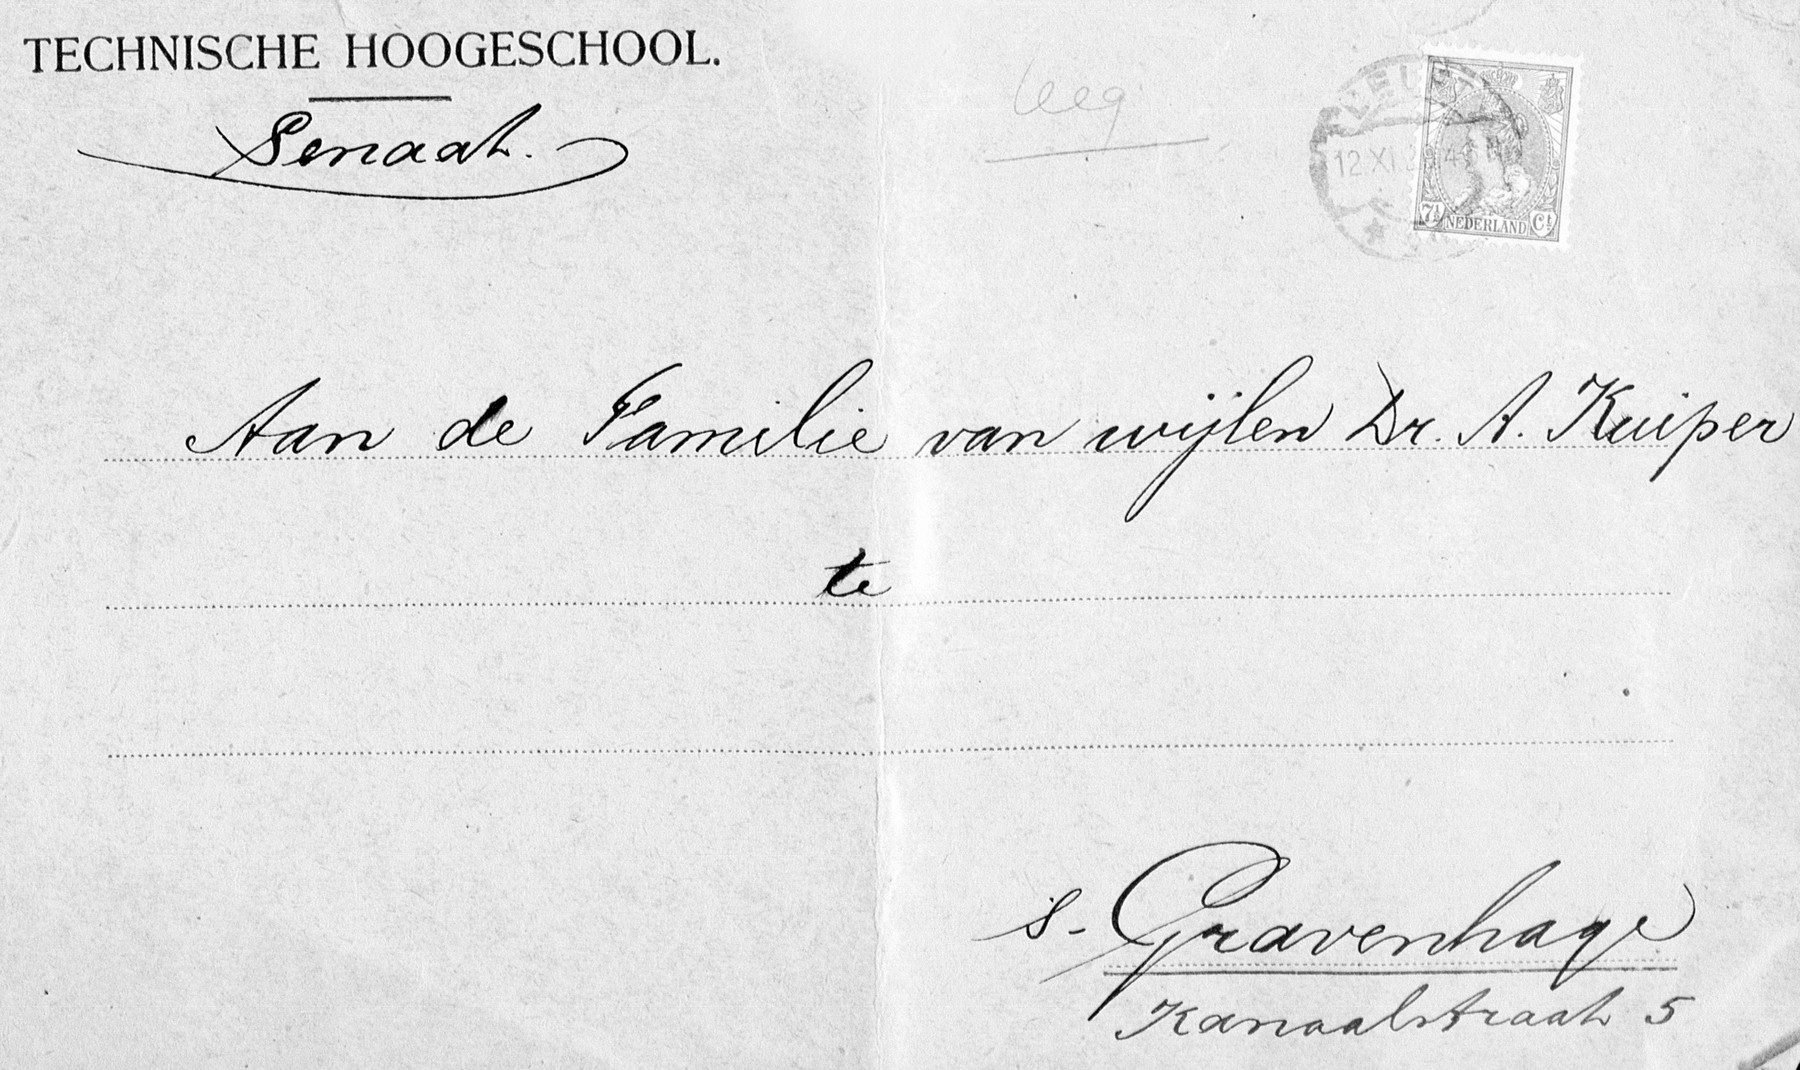 TECHNISCHE HOOGESCHOOL.
Senaat.
leeg
DELFT
12.XI.2
7½ NEDERLAND Ct
Aan de Familie van wijlen Dr. A. Kuiper
te
s-Gravenhage
Kanaalstraat 5